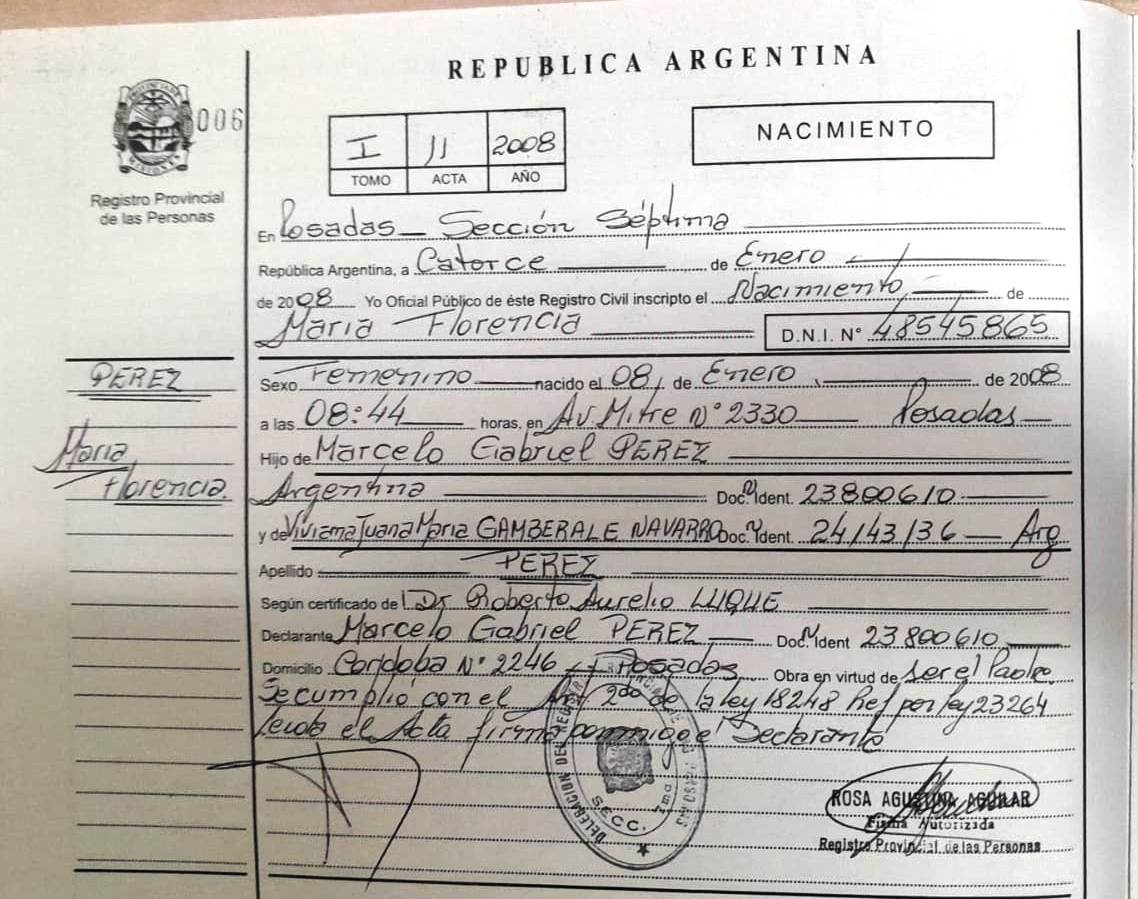 REPUBLICA ARGENTINA
006
I 11 2008
TOMO ACTA AÑO
NACIMIENTO
Registro Provincial
de las Personas
En Posadas — Sección Séptima
República Argentina, a Catorce de Enero
de 2008 Yo Oficial Público de éste Registro Civil inscripto el Nacimiento de
Maria Florencia D.N.I. N° 48545865
PEREZ
Maria
Florencia.
Sexo Femenino nacido el 08 de Enero de 2008
a las 08:44 horas, en Av. Mitre N° 2330 Posadas
Hijo de Marcelo Gabriel PEREZ
Argentina Doc. Ident. 23800610
y de Viviana Juana Maria GAMBERALE NAVARRO Doc. Ident. 24143136 — Arg
Apellido PEREZ
Según certificado del Dr Roberto Aurelio LUQUE
Declarante Marcelo Gabriel PEREZ Doc. Ident 23800610
Domicilio Cordoba N° 2246 Posadas Obra en virtud de ser el Padre
Se cumplió con el Art 2do de la ley 18248 Ref por ley 23264
Leida el Acta firma conmigo el Declarante
DELEGACION DEL REGISTRO PROVINCIAL DE LAS PERSONAS
SECC. 7ma
ROSA AGUSTINA AGUILAR
Firma Autorizada
Registro Provincial de las Personas